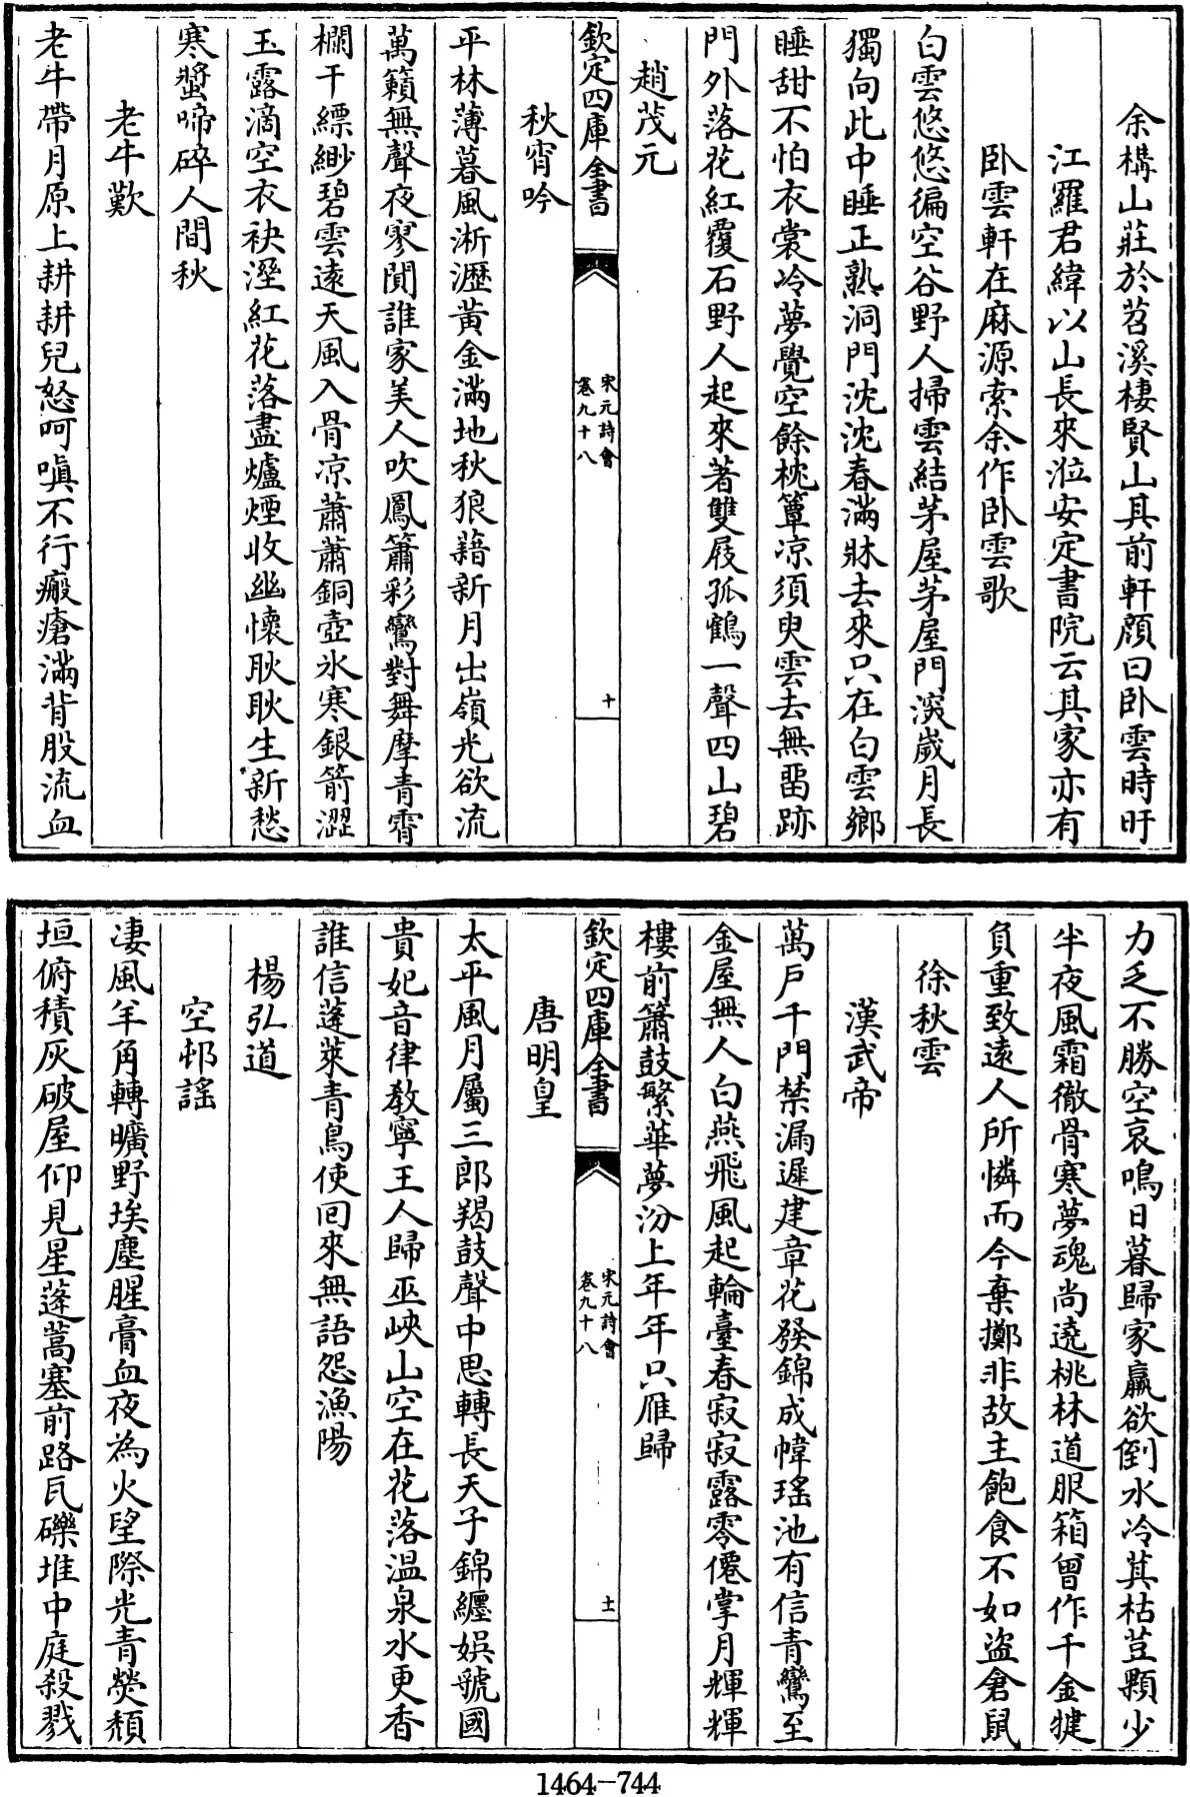 余構山莊於苕溪棲賢山其前軒顔曰卧雲時旴
江羅君緯以山長來涖安定書院云其家亦有
卧雲軒在麻源索余作卧雲歌
白雲悠悠徧空谷野人掃雲結茅屋茅屋門深歲月長
獨向此中睡正熟洞門沈沈春滿牀去來只在白雲鄉
睡甜不怕衣裳冷夢覺空餘枕簟凉須臾雲去無畱跡
門外落花紅覆石野人起來著雙屐孤鶴一聲四山碧
趙茂元
欽定四庫全書
宋元詩會
卷九十八
十
秋宵吟
平林薄暮風淅瀝黃金滿地秋狼藉新月出嶺光欲流
萬籟無聲夜寥闃誰家美人吹鳳簫彩鸞對舞摩青霄
欄干縹緲碧雲遠天風入骨凉蕭蕭銅壺氷寒銀箭澀
玉露滴空衣袂溼紅花落盡爐煙收幽懷耿耿生新愁
寒螿啼碎人間秋
老牛歎
老牛帶月原上耕耕兒怒呵嗔不行瘢瘡滿背股流血
力乏不勝空哀鳴日暮歸家羸欲倒水冷萁枯荳顆少
半夜風霜徹骨寒夢魂尚遶桃林道服箱曾作千金犍
負重致遠人所憐而今棄擲非故主飽食不如盜倉鼠
徐秋雲
漢武帝
萬戶千門禁漏遲建章花發錦成幃瑤池有信青鸞至
金屋無人白燕飛風起輪臺春寂寂露零僊掌月輝輝
樓前簫鼓繁華夢汾上年年只雁歸
欽定四庫全書
宋元詩會
卷九十八
十一
唐明皇
太平風月屬三郎羯鼓聲中思轉長天子錦纏娛虢國
貴妃音律教寧王人歸巫峽山空在花落温泉水更香
誰信蓬萊青鳥使回來無語怨漁陽
楊弘道
空邨謠
凄風羊角轉曠野埃塵腥膏血夜為火望際光青熒頹
垣俯積灰破屋仰見星蓬蒿塞前路瓦礫堆中庭殺戮
1464-744